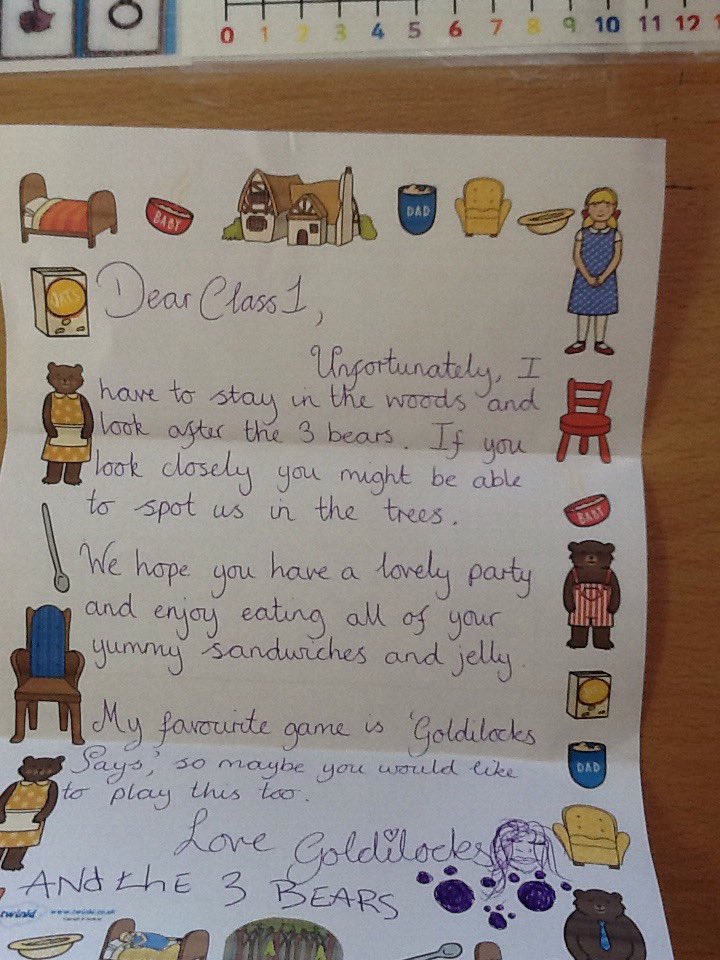 0 1 2 3 4 5 6 7 8 9 10 11 12
BABY
DAD
OATS
Dear Class 1,
Unfortunately, I
have to stay in the woods and
look after the 3 bears. If you
look closely you might be able
to spot us in the trees.
BABY
We hope you have a lovely party
and enjoy eating all of your
yummy sandwiches and jelly.
My favourite game is 'Goldilocks
Says', so maybe you would like
to play this too.
DAD
Love Goldilocks
ANd thE 3 BEARS
twinkl www.twinkl.co.uk